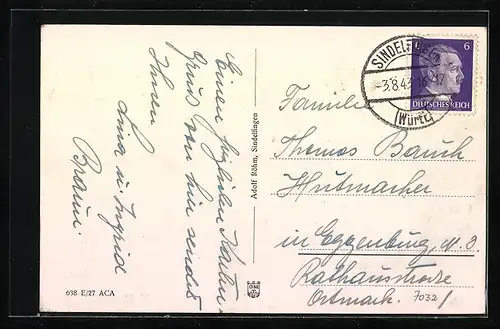 Einen
Kartengruss von hier sendet
Ihnen
Lina u. Ingrid
Braun.
Adolf Röhm, Sindelfingen
638 E/27 ACA
SINDELFINGEN
-3.8.43
(Württ)
6
DEUTSCHES REICH
Familie
Thomas Bauch
Hutmacher
in Eggenburg, N. D.
Rathausstrasse
Ostmark. 7032/